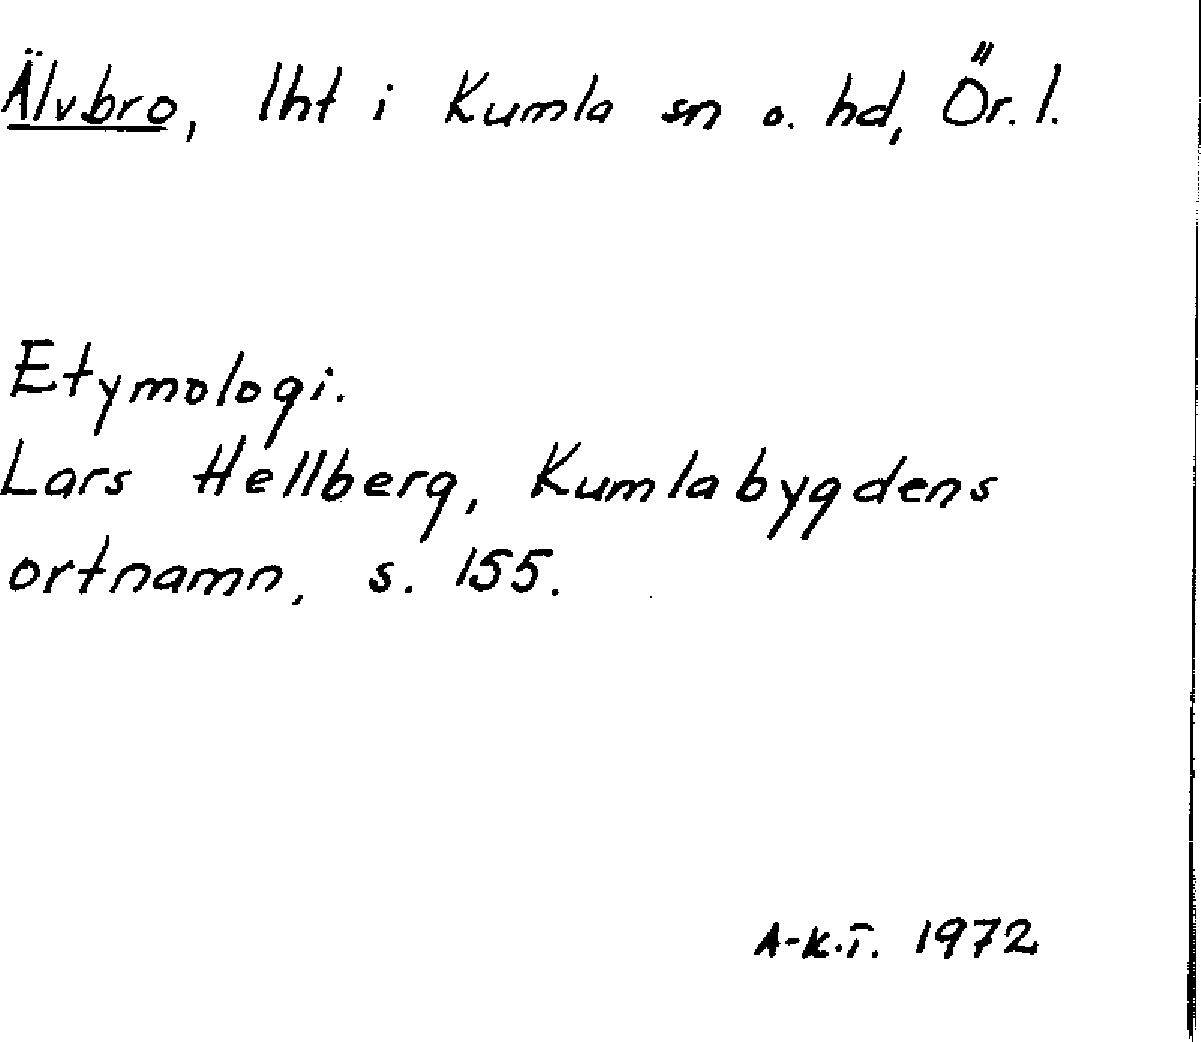 Älvbro, lht i Kumla sn o. hd, Ör. l.
Etymologi.
Lars Hellberg, Kumlabygdens
ortnamn, s. 155.
A-K.T. 1972